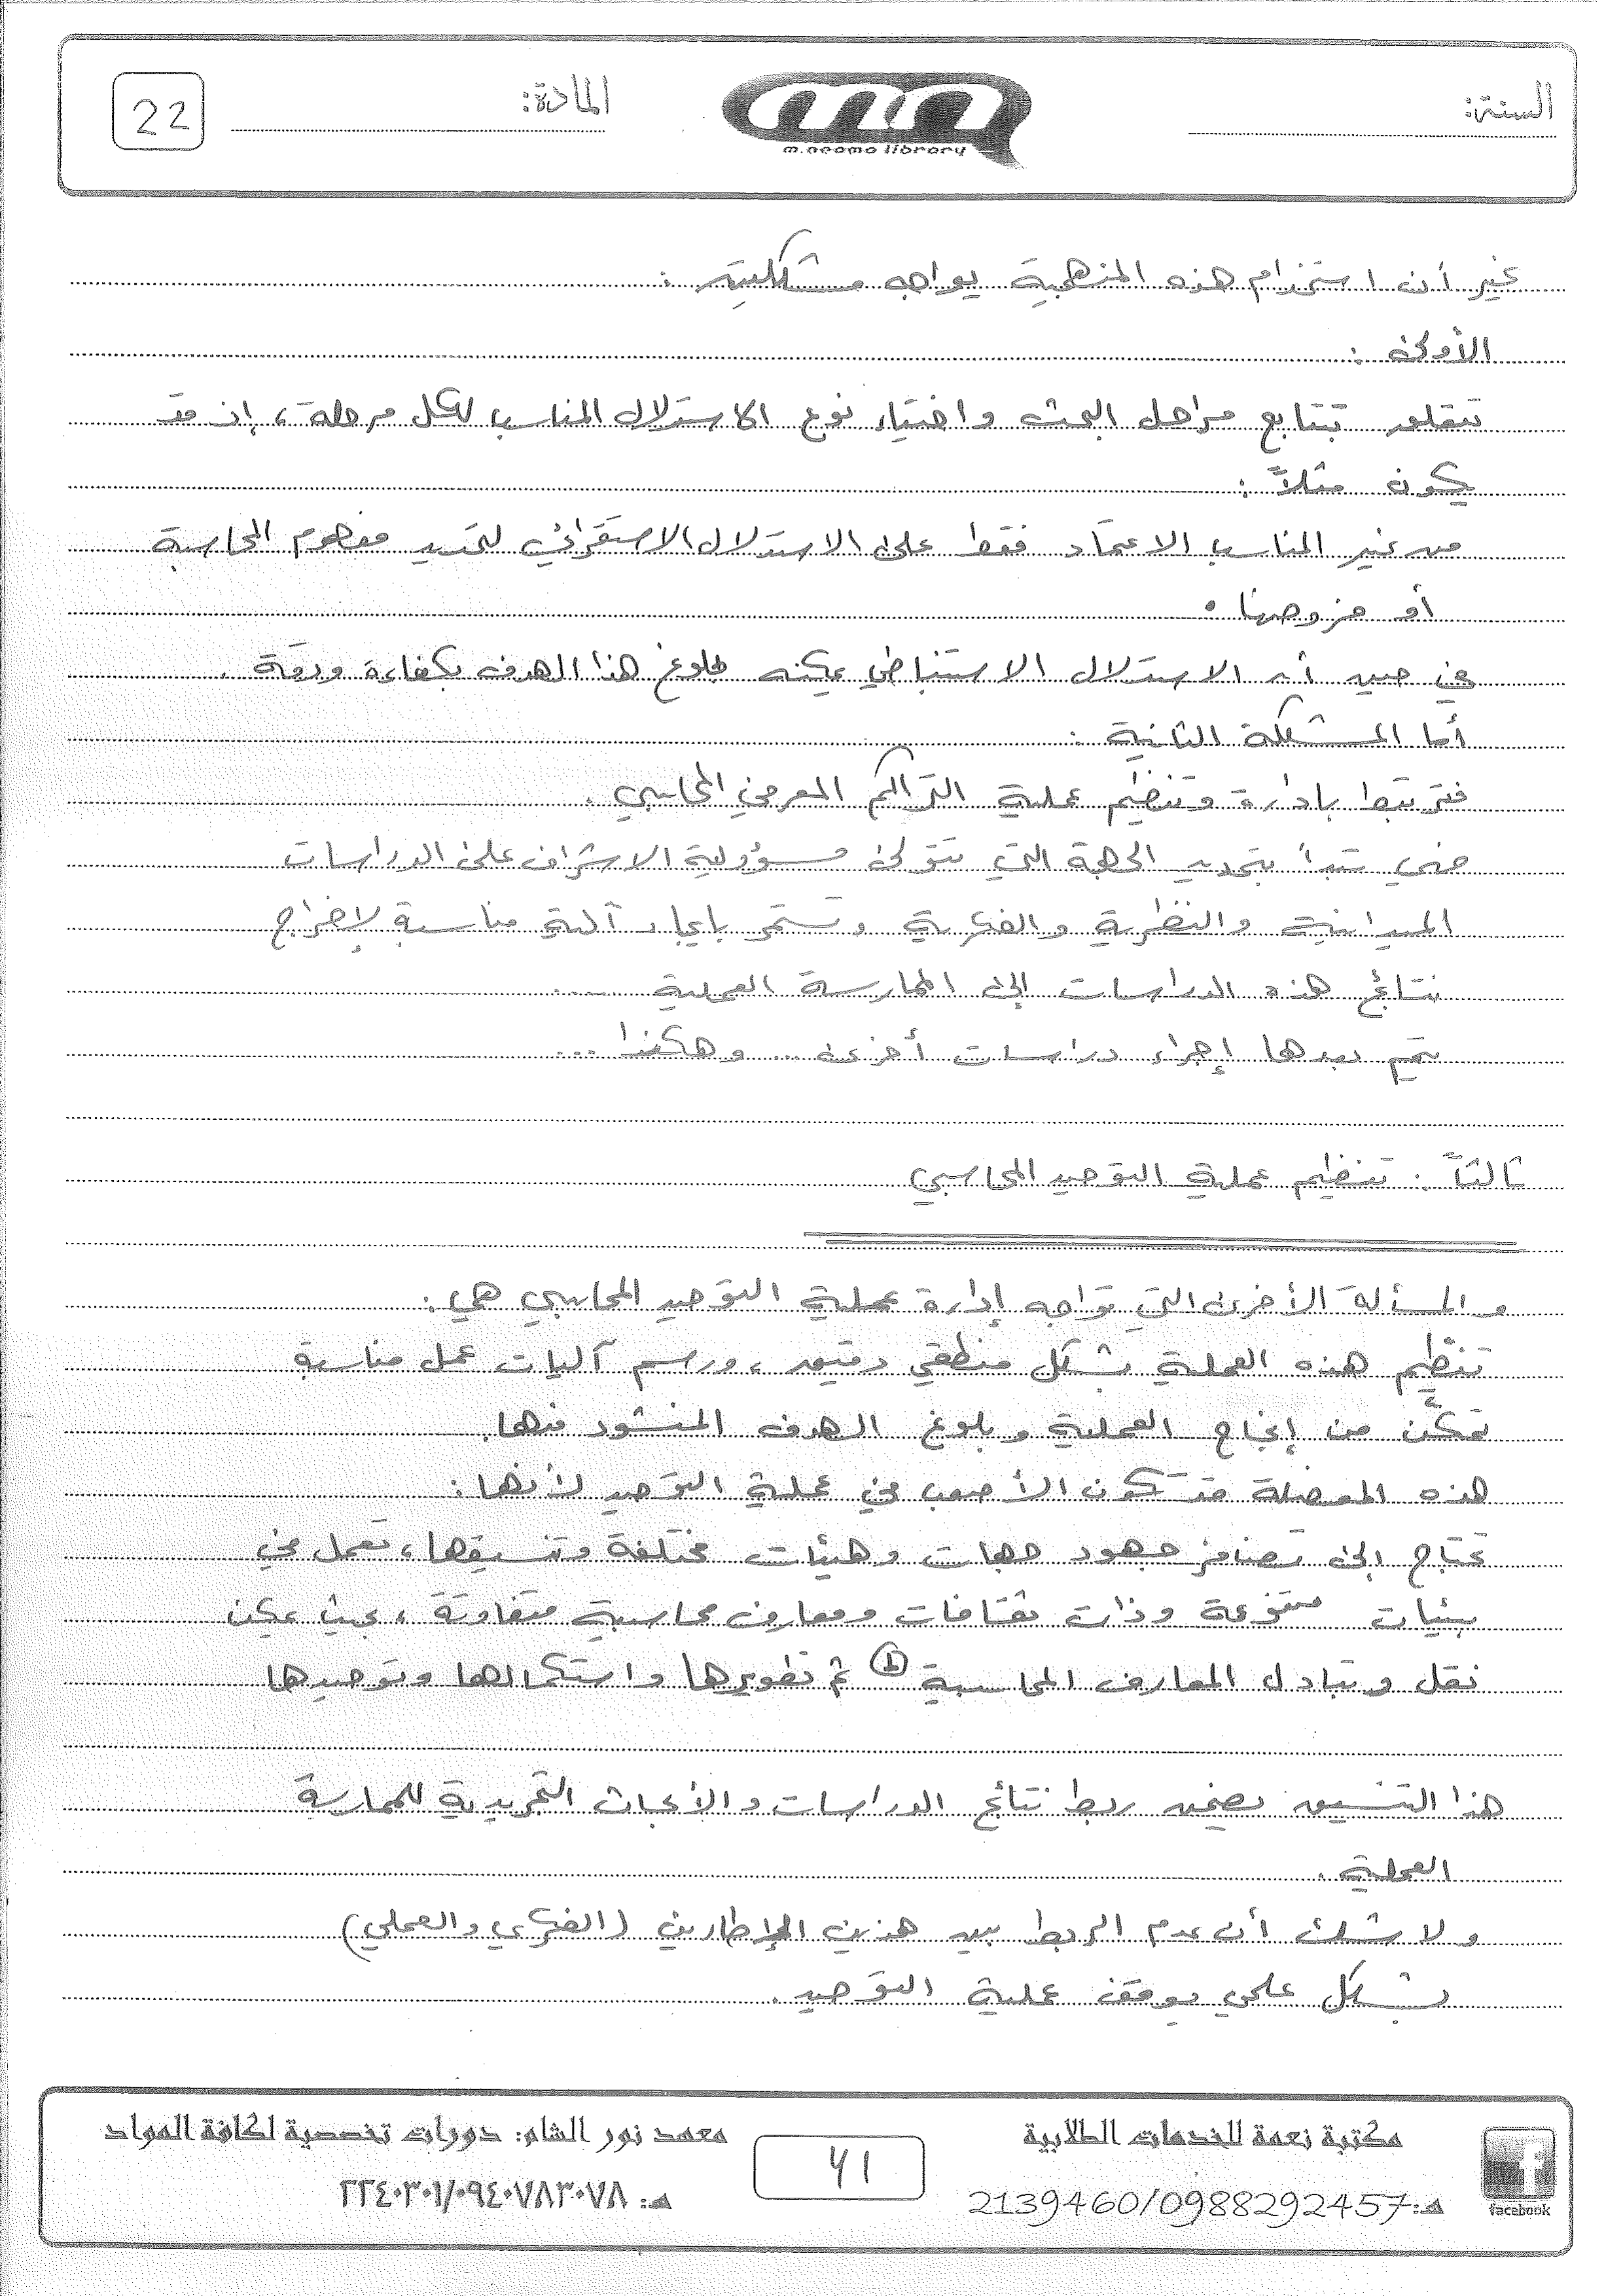 السنة:
m.neama library
المادة:
22
غير أن استخدام هذه المنهجية يواجه مشكلتين :
الأولى :
تتعلق بتتابع مراحل البحث واختيار نوع الاستدلال المناسب لكل مرحلة، إذ قد
يكون مثلاً :
من غير المناسب الاعتماد فقط على الاستدلال الاستقرائي لتحديد مفهوم المحاسبة
أو فروضها .
في حين أن الاستدلال الاستنباطي يمكنه بلوغ هذا الهدف بكفاءة ودقة .
أما المشكلة الثانية :
فترتبط بإدارة وتنظيم عملية التراكم المعرفي المحاسبي .
فهي تبدأ بتحديد الجهة التي تتولى مسؤولية الاشراف على الدراسات
الميدانية والنظرية والفكرية وتستمر بإيجاد آلية مناسبة لإخراج
نتائج هذه الدراسات إلى الممارسة العملية ....
يتم بعدها إجراء دراسات أخرى ... وهكذا ...
ثالثاً : تنظيم عملية التوحيد المحاسبي
و المسألة الأخرى التي تواجه إدارة عملية التوحيد المحاسبي هي :
تنظيم هذه العملية بشكل منطقي دقيق ، ورسم آليات عمل مناسبة
تمكّن من إنجاح العملية و بلوغ الهدف المنشود منها.
هذه المعضلة قد تكون الأصعب في عملية التوحيد لأنها :
تحتاج إلى تضافر جهود جهات وهيئات مختلفة وتنسيقها ، تعمل في
بيئات متنوعة وذات ثقافات ومعارف محاسبية متفاوتة ، بحيث يمكن
نقل وتبادل المعارف المحاسبية ثم تطويرها واستكمالها وتوحيدها
هذا التنسيق يضمن ربط نتائج الدراسات والأبحاث التجريدية للممارسة
العملية .
ولا شك أن عدم الربط بين هذين الإطارين (الفكري والعملي)
بشكل علمي يوقف عملية التوحيد .
مكتبة نعمة للخدمات الطلابية
هـ: 2139460/0988292457
facebook
٤١
معهد نور الشام: دورات تخصصية لكافة المواد
هـ: ٢٢٤٠٣٠١/٠٩٤٠٧٨٣٠٧٨